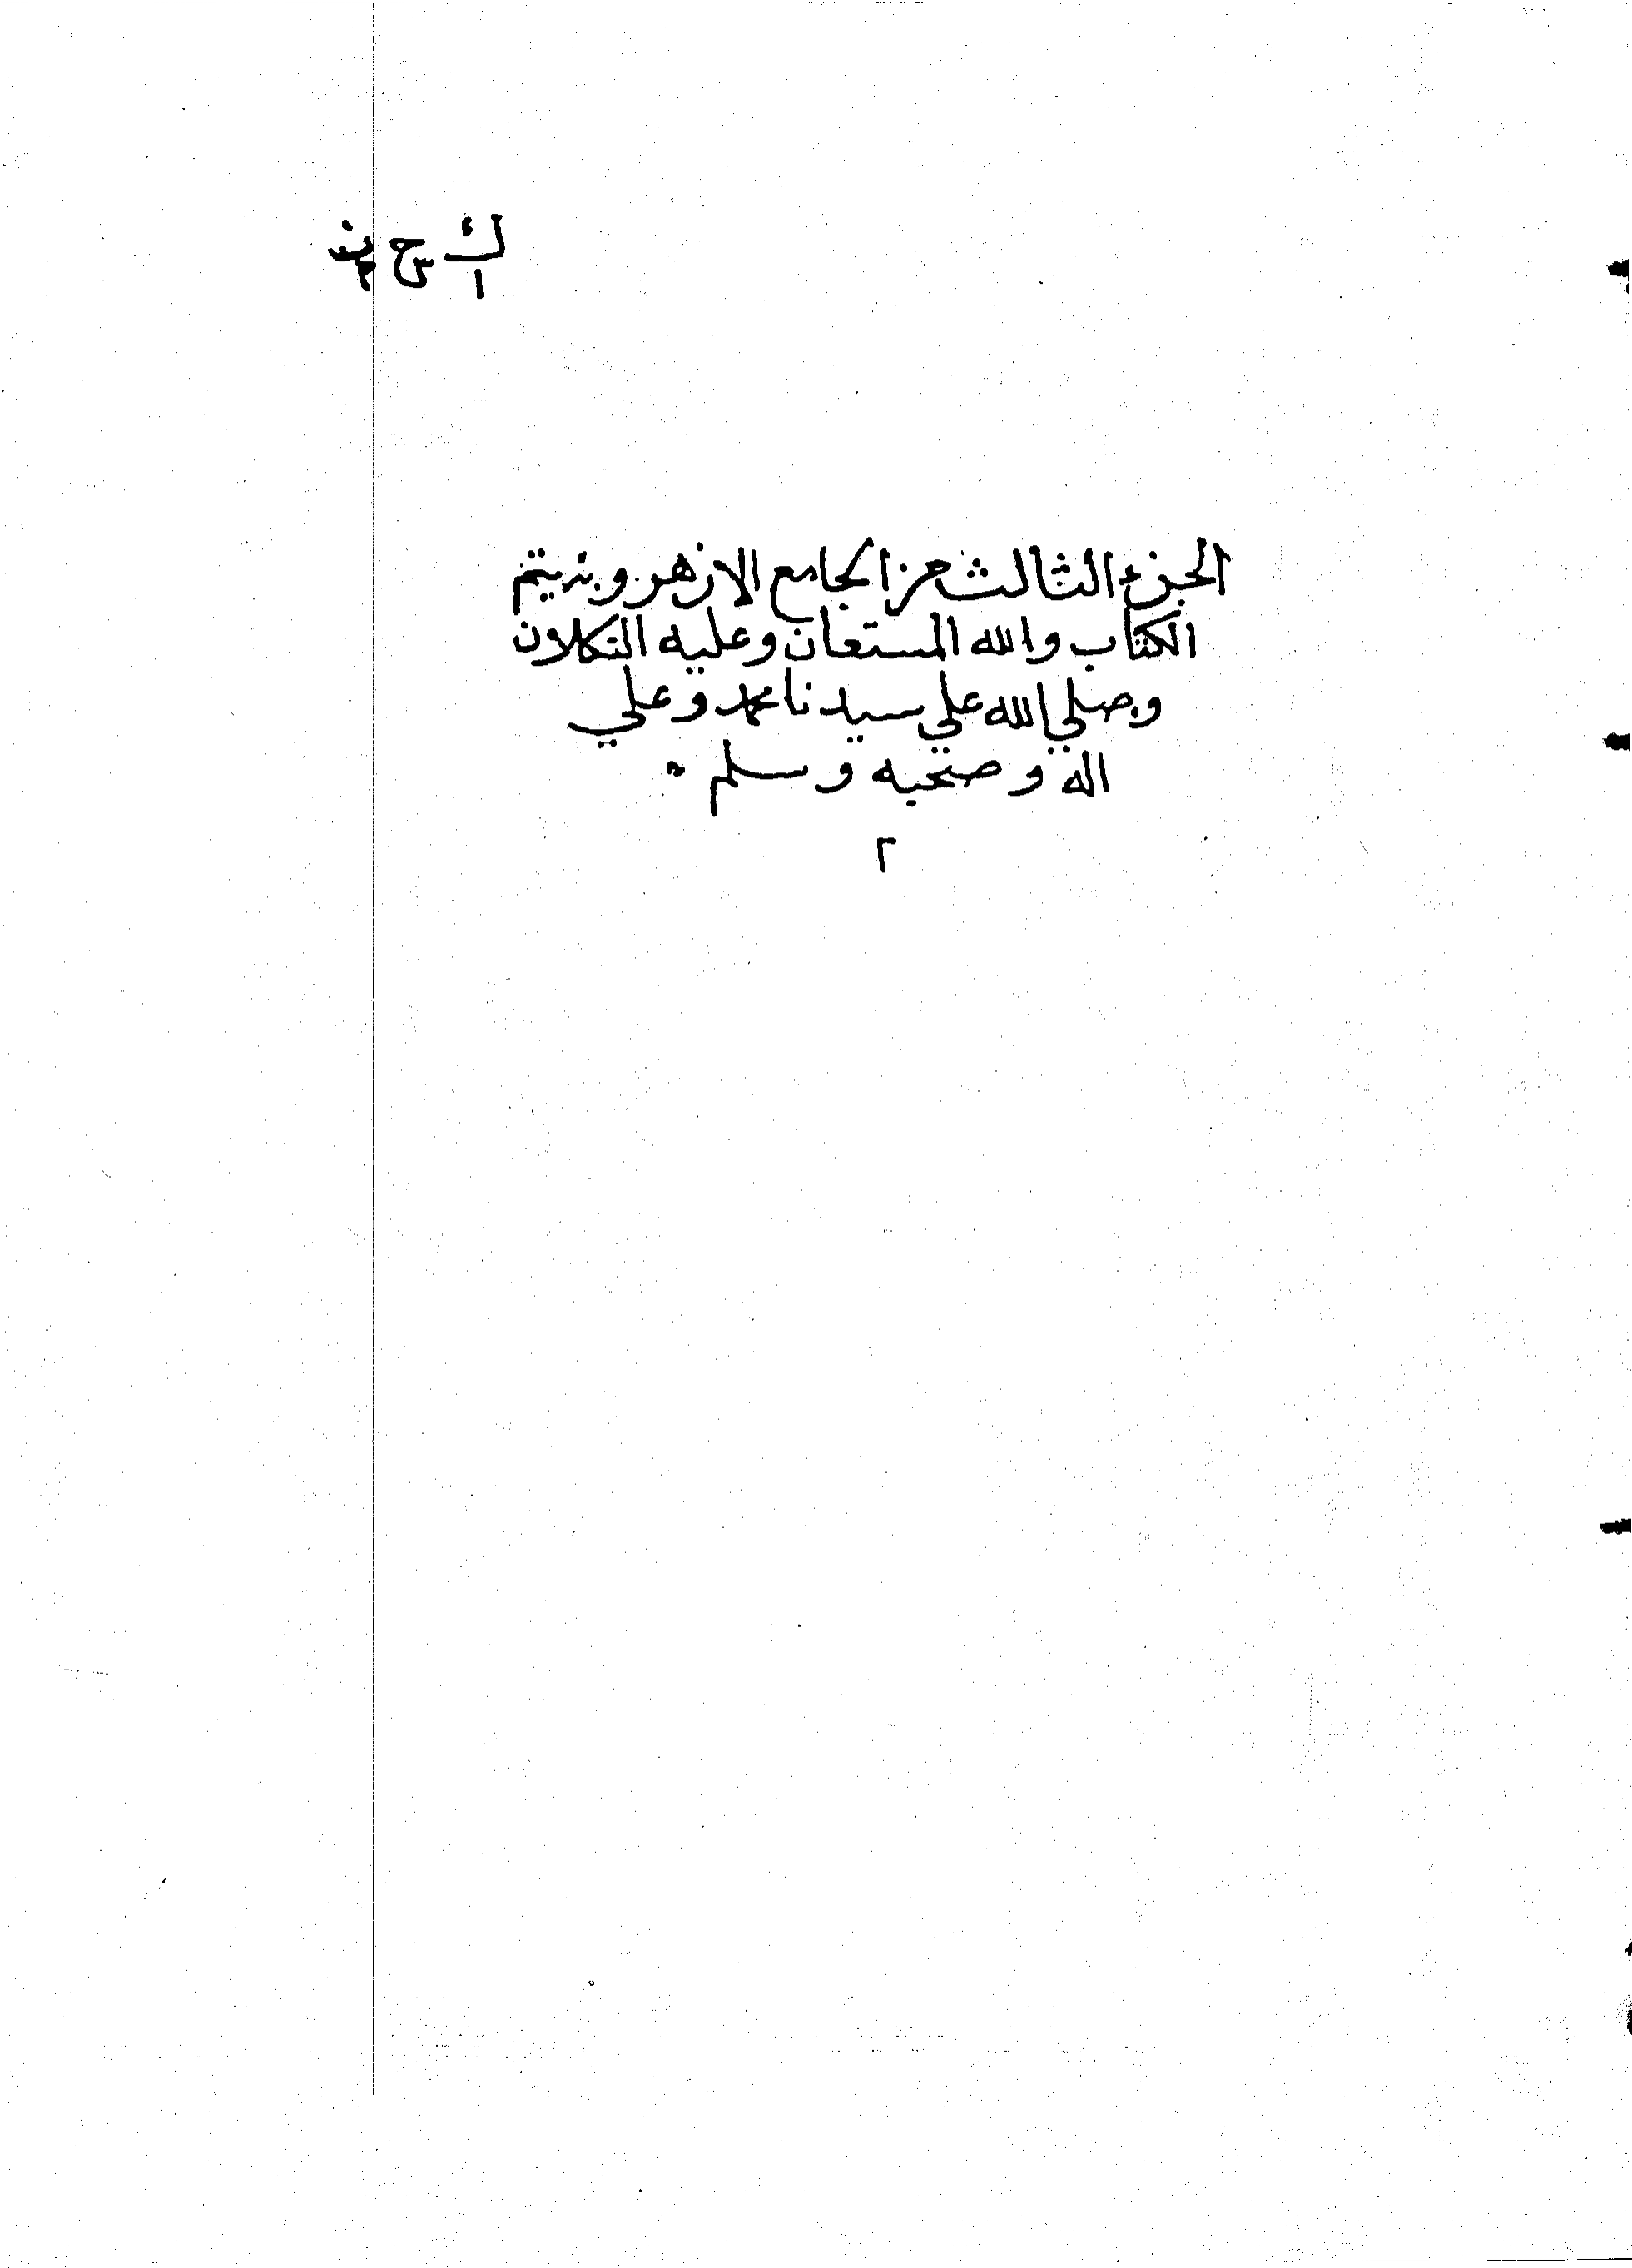 الجزء الثالث من الجامع الازهر وبه يتم
الكتاب والله المستعان وعليه التكلان
وصلي الله علي سيدنا محمد وعلي
اله وصحبه وسلم
٢